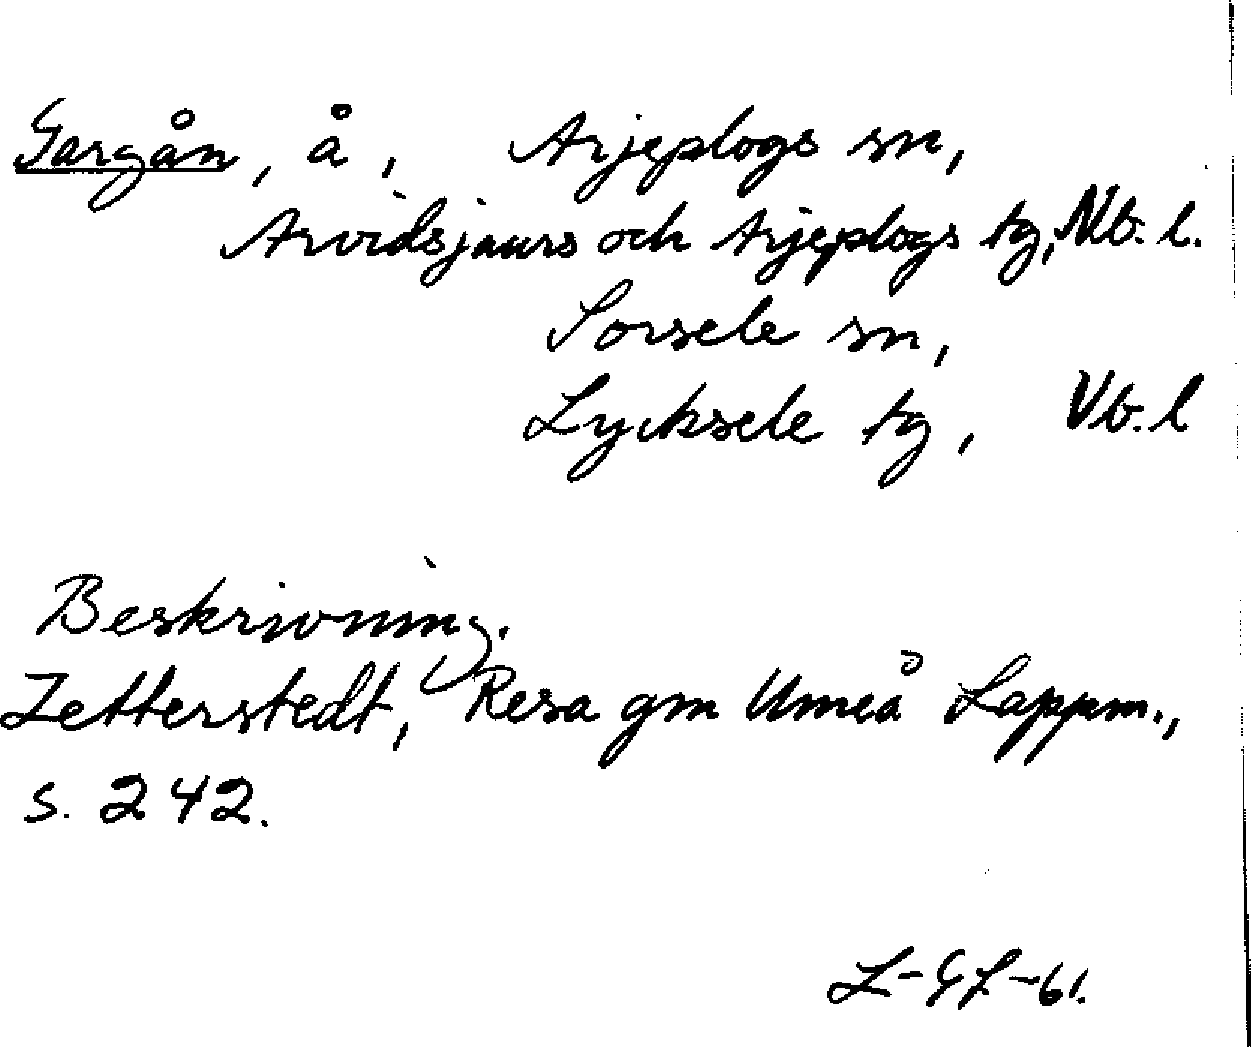 Gargån, å, Arjeplogs sn,
Arvidsjaurs och Arjeplogs tg, Nb. l.
Sorsele sn,
Lycksele tg, Vb. l
Beskrivning.
Zetterstedt, Resa gm Umeå Lappm.,
s. 242.